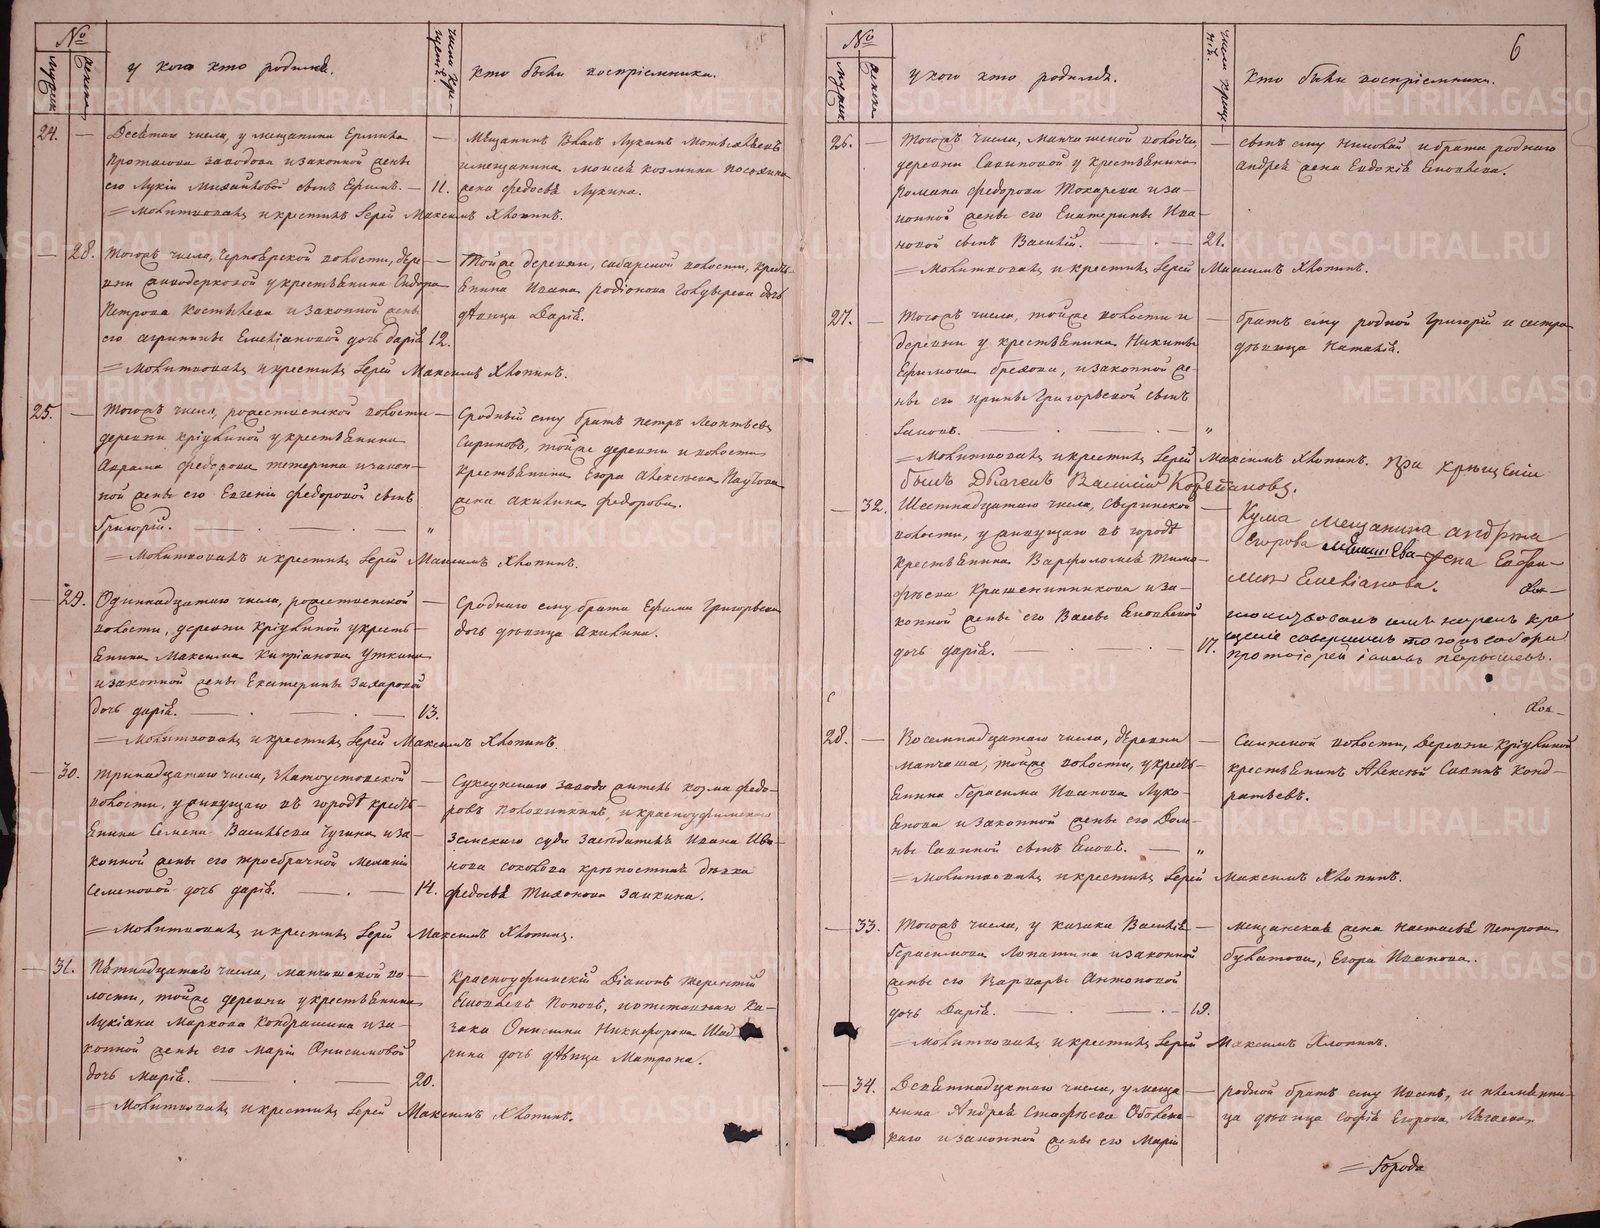 №
мужеск
женска
у кого кто родился.
число крещенiй
кто были восприемники.
24. — Десятаго числа, у мещанина Ермила
Протасова заводова и законной жены
его Лукiи Михайловой сынъ Ефимъ. — 11.
— Мещанинъ Власъ Лукинъ
и мещанина моисея козмина
жена федосья Лукина.
= Молитвовалъ и крестилъ Iерей Максимъ Хлопинъ.
— 28. Тогожъ числа, волости, дере-
вни у крестьянина
Петрова Костылева и законной жены
его агрипины Емелiановой дочь дарiя 12.
— Тойже деревни, волости, кресть-
янина Ивана родiонова дочь
дѣвица Дарiя.
= Молитвовалъ и крестилъ Iерей Максимъ Хлопинъ.
25. — Тогожъ числа, рожественской волости
деревни крiулиной у крестьянина
Аврама федорова тетерина и закон-
ной жены его Евгенiи федоровой сынъ
Григорiй. — . — . — „
— Сродный ему братъ петръ Леонтьевъ
тойже деревни и волости
крестьянина Егора алексѣева Паутова
жена акилина федорова.
= Молитвовалъ и крестилъ Iерей Максимъ Хлопинъ.
— 29. Одиннадцатаго числа, рожественской
волости, деревни крiулиной у кресть-
янина Максима Кипрiанова Уткина
и законной жены Екатерины Захаровой
дочь дарiя. — . — . — 13.
— Сроднаго ему брата Ефима Григорьева
дочь дѣвица акилина.
= Молитвовалъ и крестилъ Iерей Максимъ Хлопинъ.
— 30. тринадцатаго числа, златоустовской
волости, у живущаго въ городѣ кресть-
янина Семена Васильева Чугина и за-
конной жены его троебрачной Меланiи
Семеновой дочь дарiя. — . — 14.
— Суксунскаго завода житель козма федо-
ровъ половинкинъ, и красноуфимскаго
Земскаго суда Засѣдателя Ивана Ива-
нова соколова крѣпостная дѣвка
федосья Тихонова Заикина.
= Молитвовалъ и крестилъ Iерей Максимъ Хлопинъ.
— 31. Пятнадцатаго числа, манчажской во-
лости, тойже деревни у крестьянина
Лукiана Маркова Кондрашина и за-
конной жены его Марiи Онисимовой
дочь Марiя. — . — 20.
— Красноуфимскiй Дiаконъ терентiй
Яковлевъ Поповъ, и отставнаго ка-
зака Онисима Никифорова Шад
рина дочь дѣвица Матрона.
= Молитвовалъ и крестилъ Iерей Максимъ Хлопинъ.
6
№
мужеск
женска
у кого кто родился.
число креще-
нiй.
кто были восприемники.
26. — Тогожъ числа, манчажской волости,
деревни Савиновой у крестьянина
Романа федорова Токарева и за-
конной жены его Екатерины Ива-
новой сынъ Василiй. — . — 21.
— сынъ ему Николай и брата роднаго
андрея жена Евдокiя Яковлева.
= Молитвовалъ и крестилъ Iерей Максимъ Хлопинъ.
27. — Тогожъ числа, тойже волости и
деревни у крестьянина Никиты
Ефимова брехова, и законной же-
ны его ирины Григорьевой сынъ
Iаковъ. — . — „
— братъ ему родной Григорiй и сестра
дѣвица Наталiя.
= Молитвовалъ и крестилъ Iерей Максимъ Хлопинъ. При крещенiи
былъ Дьячекъ Василiй
— 32. Шестнадцатаго числа,
волости, у живущаго въ городѣ
крестьянина Варфоломея Тимо-
фѣева Крашенинникова и за-
конной жены его Яковлевой
дочь дарiя. — . — 17.
— Кума мещанина андрея
Егорова жена Евфи-
мiя Емелiанова.
молитвовалъ имя нарекъ кре
щенiе совершилъ тогожъ собора
Протоiерей
28. — Восемнадцатаго числа, деревни
Манчажа, тойже волости, у кресть-
янина Герасима Иванова Луко-
янова и законной жены его Дом-
ны Савиной сынъ Яковъ. — „
— волости, деревни крiулиной
крестьянинъ Алексѣй Савинъ Конд-
ратьевъ.
= Молитвовалъ и крестилъ Iерей Максимъ Хлопинъ.
— 33. Тогожъ числа, у казака Василiя
Герасимова Лопатина и законной
жены его Варвары Антоновой
дочь Дарiя. — . — . — 19.
— мещанская жена настасья Петрова
булатова, Егора Иванова.
= Молитвовалъ и крестилъ Iерей Максимъ Хлопинъ.
— 34. Девятнадцатаго числа, у меща
нина Андрея Стафѣева Оболенс-
каго и законной жены его Марiи
— родной братъ ему Иванъ, и племянни-
ца дѣвица Софiя Егорова
= Города
METRIKI.GASO-URAL.RU